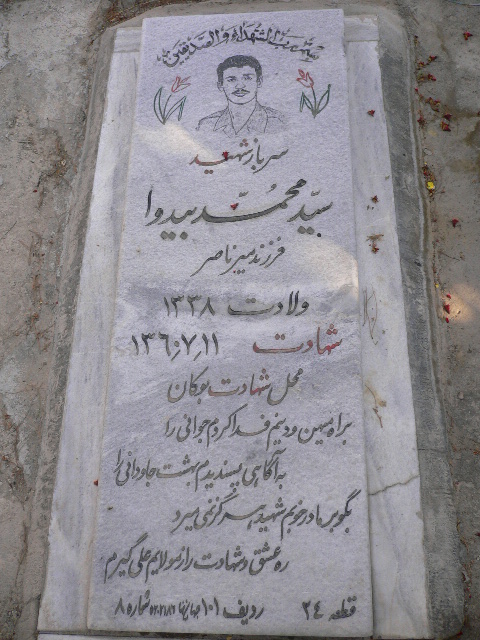 رب الشهداء والصدیقین
سرباز شهید
سیّد محمّد بیدوا
فرزند میر ناصر
ولادت ۱۳۳۸
شهادت ۱۳۶۰٫۷٫۱۱
محل شهادت بوکان
براه میهن و دینم فدا کردم جوانی را
به آگاهی پسندیدم بهشت جاودانی را
بگو بر مادر خوبم شهید هرگز نمی میرد
ره عشق و شهادت را ز مولایم علی گیرم
قطعه ۲۴ ردیف ۱۰۱ شماره ۸